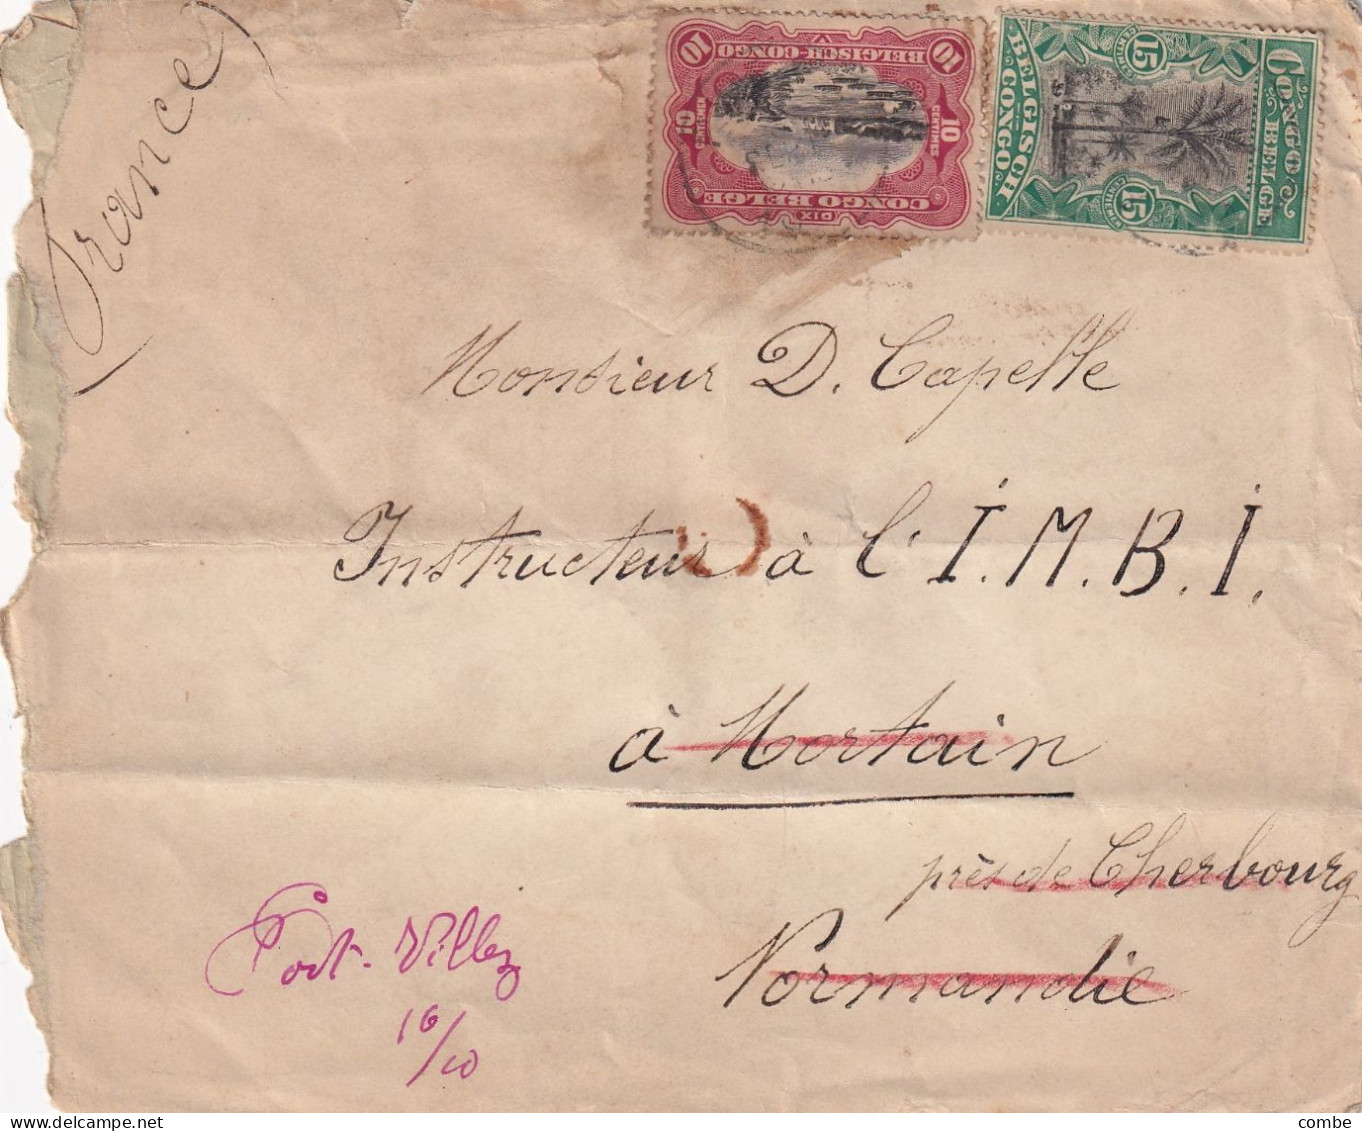 France
10 BELGISCH-CONGO 10
10 CENTIEMEN
10 CENTIMES
CONGO BELGE
DIX
CONGO BELGE
15
15
BELGISCH CONGO
Monsieur D. Capelle
Instructeur à l'I.M.B.I.
à Mortain
près de Cherbourg
Normandie
Port-Villez
16/10
delcampe.net
combe